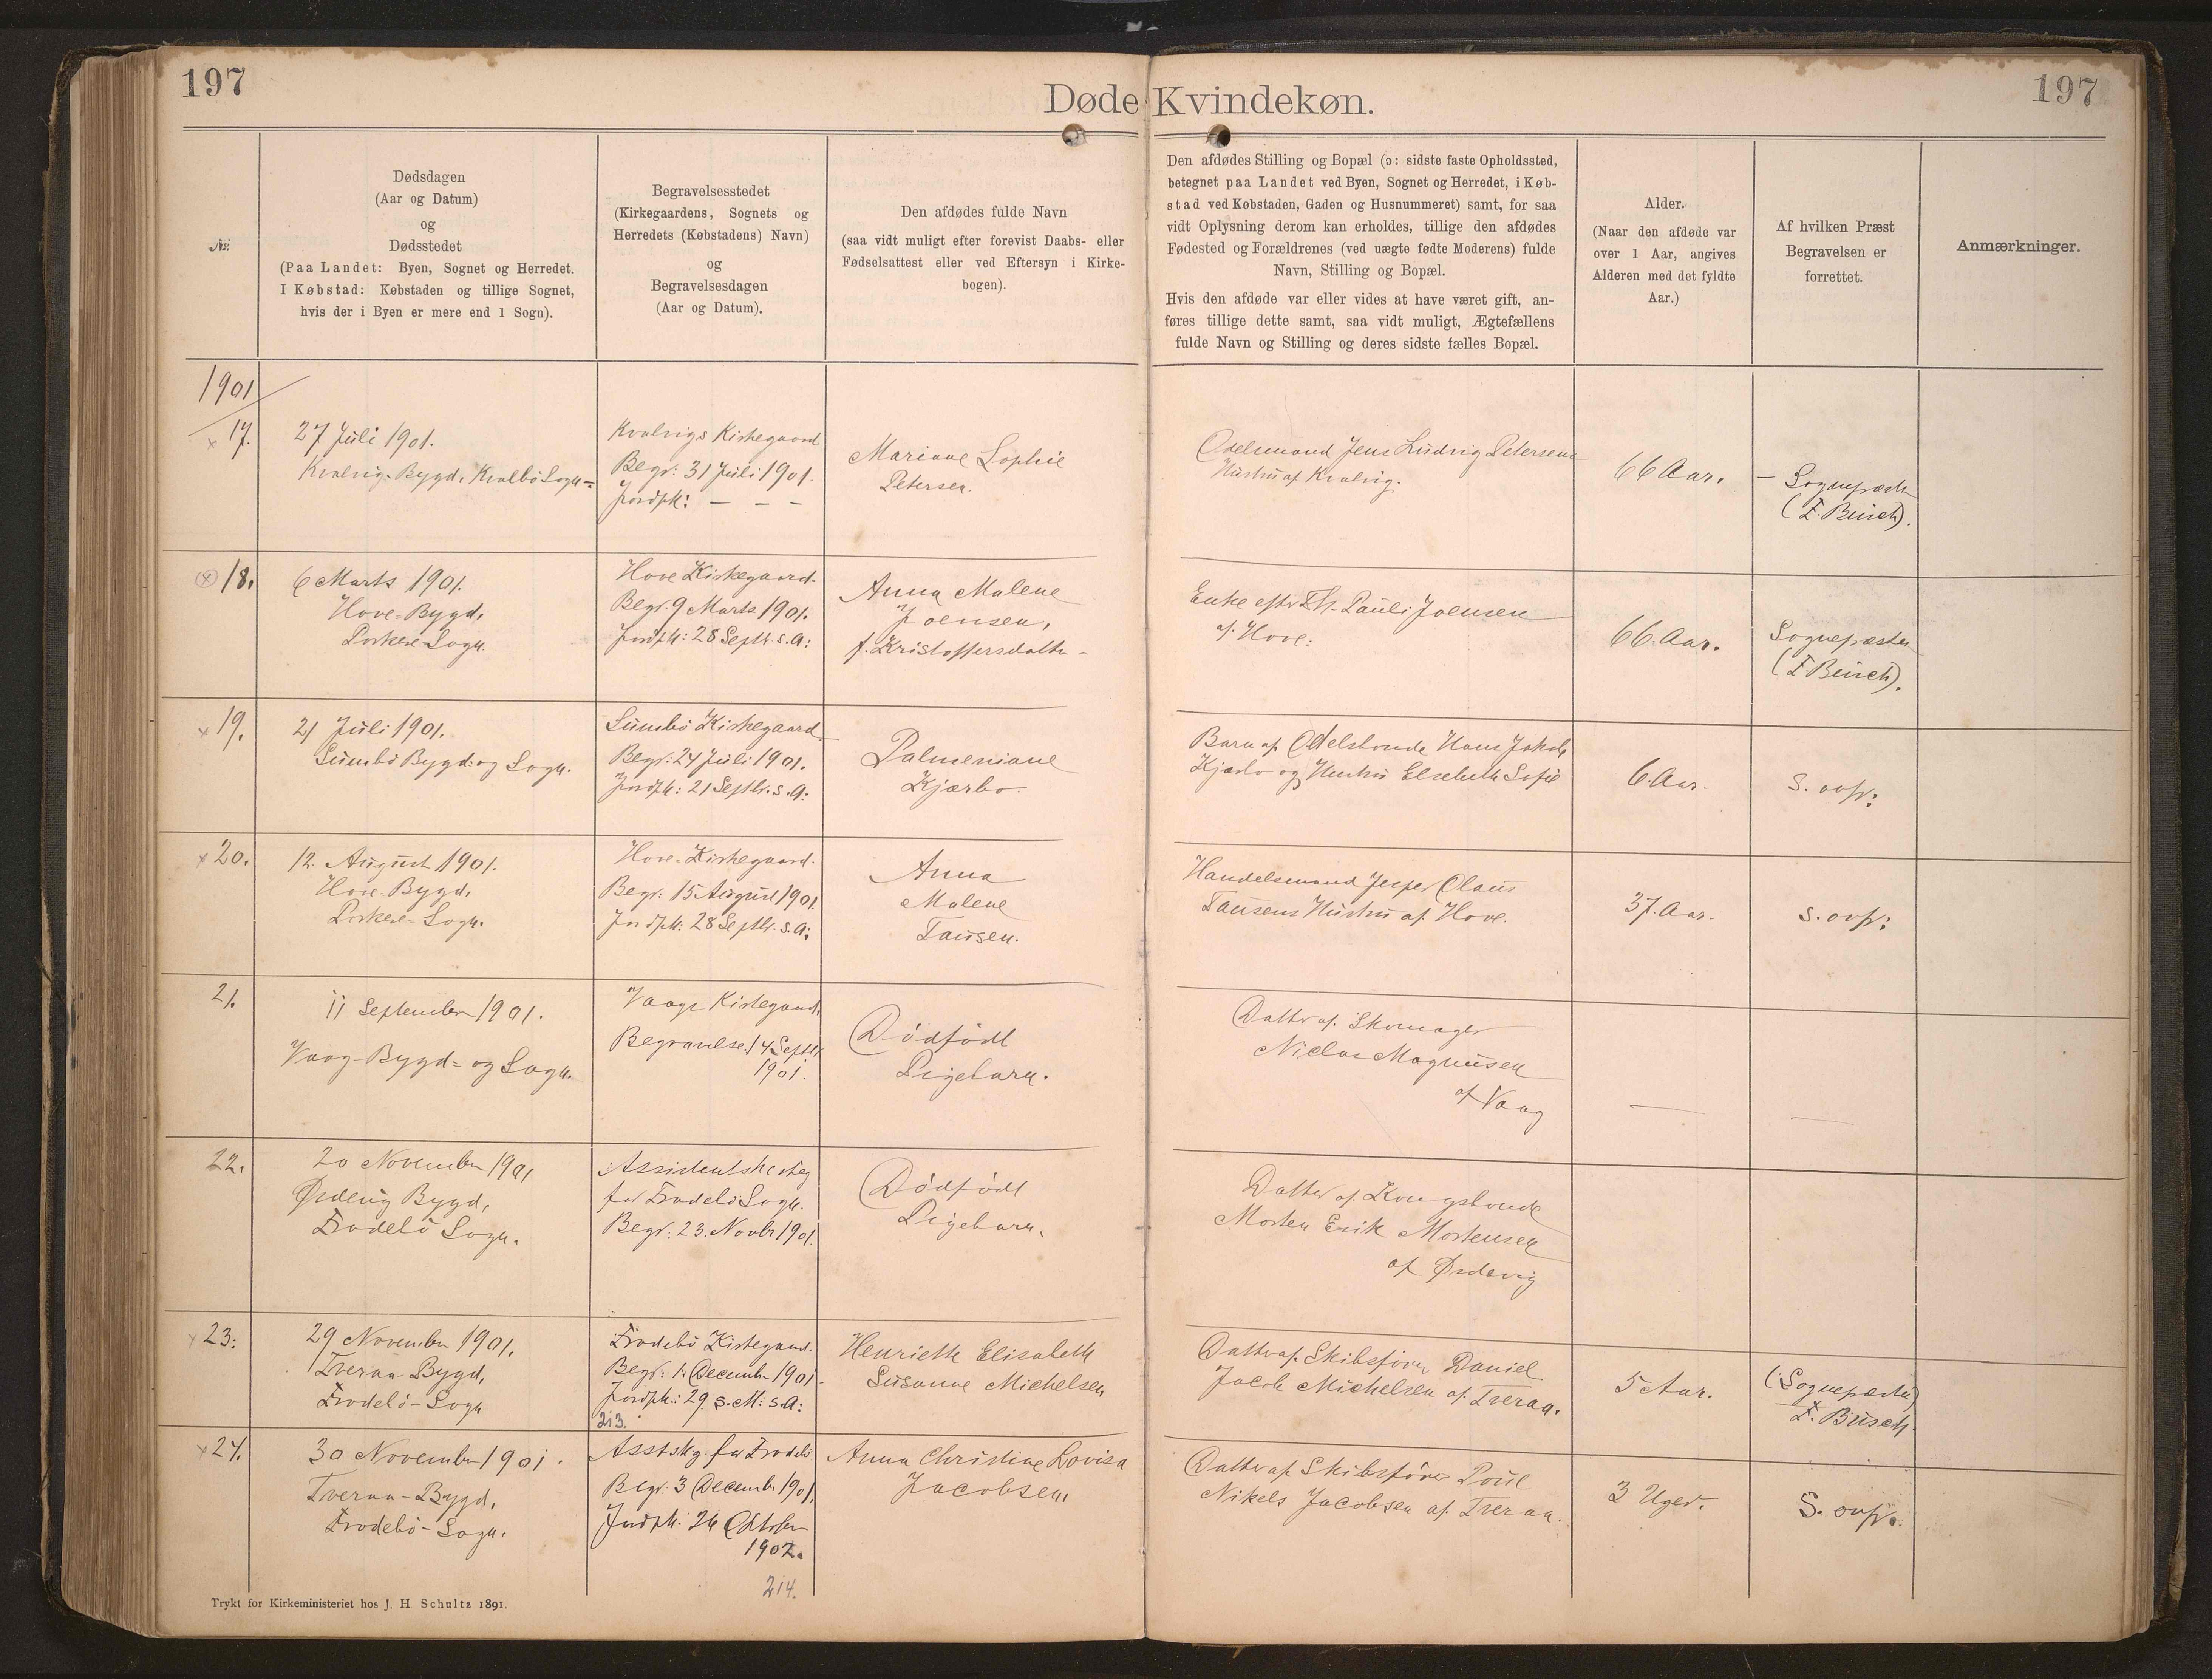 197
197
Døde Kvindekøn.
№
Dødsdagen
(Aar og Datum)
og
Dødsstedet
(Paa Landet: Byen, Sognet og Herredet.
I Købstad: Købstaden og tillige Sognet,
hvis der i Byen er mere end 1 Sogn).
Begravelsesstedet
(Kirkegaardens, Sognets og
Herredets (Købstadens) Navn)
og
Begravelsesdagen
(Aar og Datum).
Den afdødes fulde Navn
(saa vidt muligt efter forevist Daabs- eller
Fødselsattest eller ved Eftersyn i Kirke-
bogen).
Den afdødes Stilling og Bopæl (ɔ: sidste faste Opholdssted,
betegnet paa Landet ved Byen, Sognet og Herredet, i Køb-
stad ved Købstaden, Gaden og Husnummeret) samt, for saa
vidt Oplysning derom kan erholdes, tillige den afdødes
Fødested og Forældrenes (ved uægte fødte Moderens) fulde
Navn, Stilling og Bopæl.
Hvis den afdøde var eller vides at have været gift, an-
føres tillige dette samt, saa vidt muligt, Ægtefællens
fulde Navn og Stilling og deres sidste fælles Bopæl.
Alder.
(Naar den afdøde var
over 1 Aar, angives
Alderen med det fyldte
Aar.)
Af hvilken Præst
Begravelsen er
forrettet.
Anmærkninger.
1901
× 17.
27 Juli 1901.
Kvalvig-Bygd, Kvalbö Sogn=
Kvalvigs Kirkegaard
Begr: 31 Juli 1901.
Jordpk: — — —
Mariane Sophie
Petersen.
Odelsmand Jens Ludvig Petersens
Hustru af Kvalvig.
66 Aar.
— Sognepræst
(F. Busch).
× 18.
6 Marts 1901.
Hove=Bygd,
Porkeri-Sogn.
Hove Kirkegaard.
Begr. 9 Marts 1901.
Jordpk: 28 Septb. s. A:
Anna Malene
Joensen,
f. Kristoffersdatter -
Enke efter Th. Pauli Joensen
af Hove:
66. Aar.
Sognepræsten
(F. Busch).
× 19.
21 Juli 1901.
Sumbö Bygd= og Sogn.
Sumbö Kirkegaard
Begr: 24 Juli 1901.
Jordpk: 21 Septb. s. A:
Palmeniane
Kjærbo.
Barn af Odelsbonde Hans Jakob
Kjærbo og Hustru Elsebeth Sofie
6. Aar.
S. ovfr:
× 20.
12. August 1901.
Hove-Bygd,
Porkeri-Sogn.
Hove-Kirkegaard.
Begr: 15 August 1901.
Jordpk: 28 Septb. s. A:
Anna
Malene
Tausen.
Handelsmand Jesper Claus
Tausens Hustru af Hove.
37. Aar.
S. ovfr:
21.
11 September 1901.
Vaag-Bygd= og Sogn.
Vaags Kirkegaard.
Begravelse. 14 Septb.
1901.
Dödfödt
Pigebarn.
Datter af Skomager
Niclas Magnussen
af Vaag
—
—
22.
20 November 1901
Ørdevig Bygd,
Frodebö Sogn.
Assistentskirkeg
for Frodebö Sogn.
Begr: 23. Novbr 1901.
Dödfödt
Pigebarn.
Datter af Kongsbonde
Morten Erik Mortensen
af Ørdevig
× 23:
29 November 1901.
Tveraa-Bygd,
Frodebö-Sogn
Frodebö Kirkegaard.
Begr: 1. December 1901.
Jordpk: 29. s. M: s. A:
213.
Henriette Elisabeth
Susanne Michelsen
Datter af Skibsförer Daniel
Jacob Michelsen af Tveraa.
5 Aar.
(Sognepræsten)
F. Busch.
× 24.
30 November 1901.
Tveraa-Bygd,
Frodebö-Sogn.
Asstskg for Frodebö
Begr. 3 December 1901.
Jordpk: 26 Oktober
1902.
214.
Anna Christine Lovisa
Jacobsen,
Datter af Skibsförer Poul
Nikels Jacobsen af Tveraa.
3 Uger.
S. ovfr.
Trykt for Kirkeministeriet hos J. H Schultz 1891.